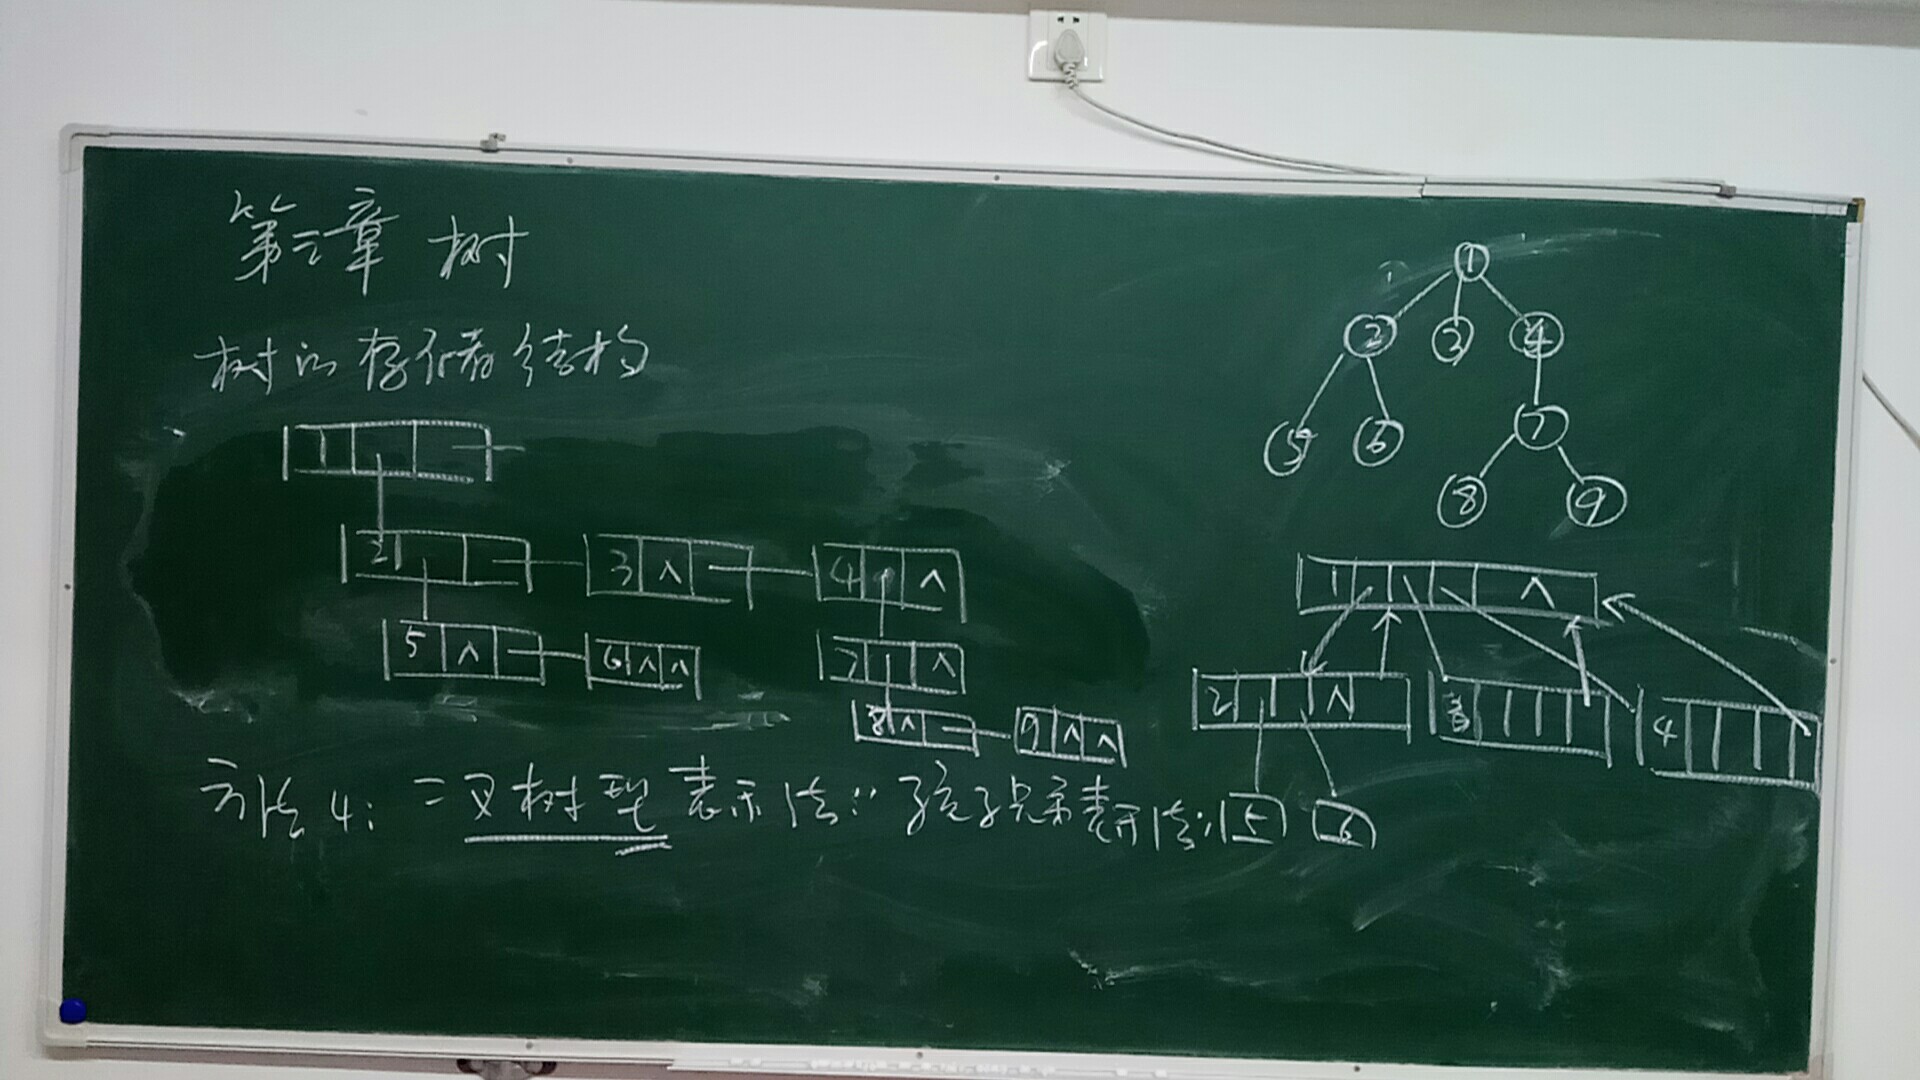 第三章 树
树的存储结构
1
2 3 ∧ 4 ∧
5 ∧ 6 ∧ ∧ 7 ∧
8 ∧ 9 ∧ ∧
方法4: 二叉树型表示法: 孩子兄弟表示法:
1
2 3 4
5 6 7
8 9
1 ∧
2 ∧ 3 4
5 6